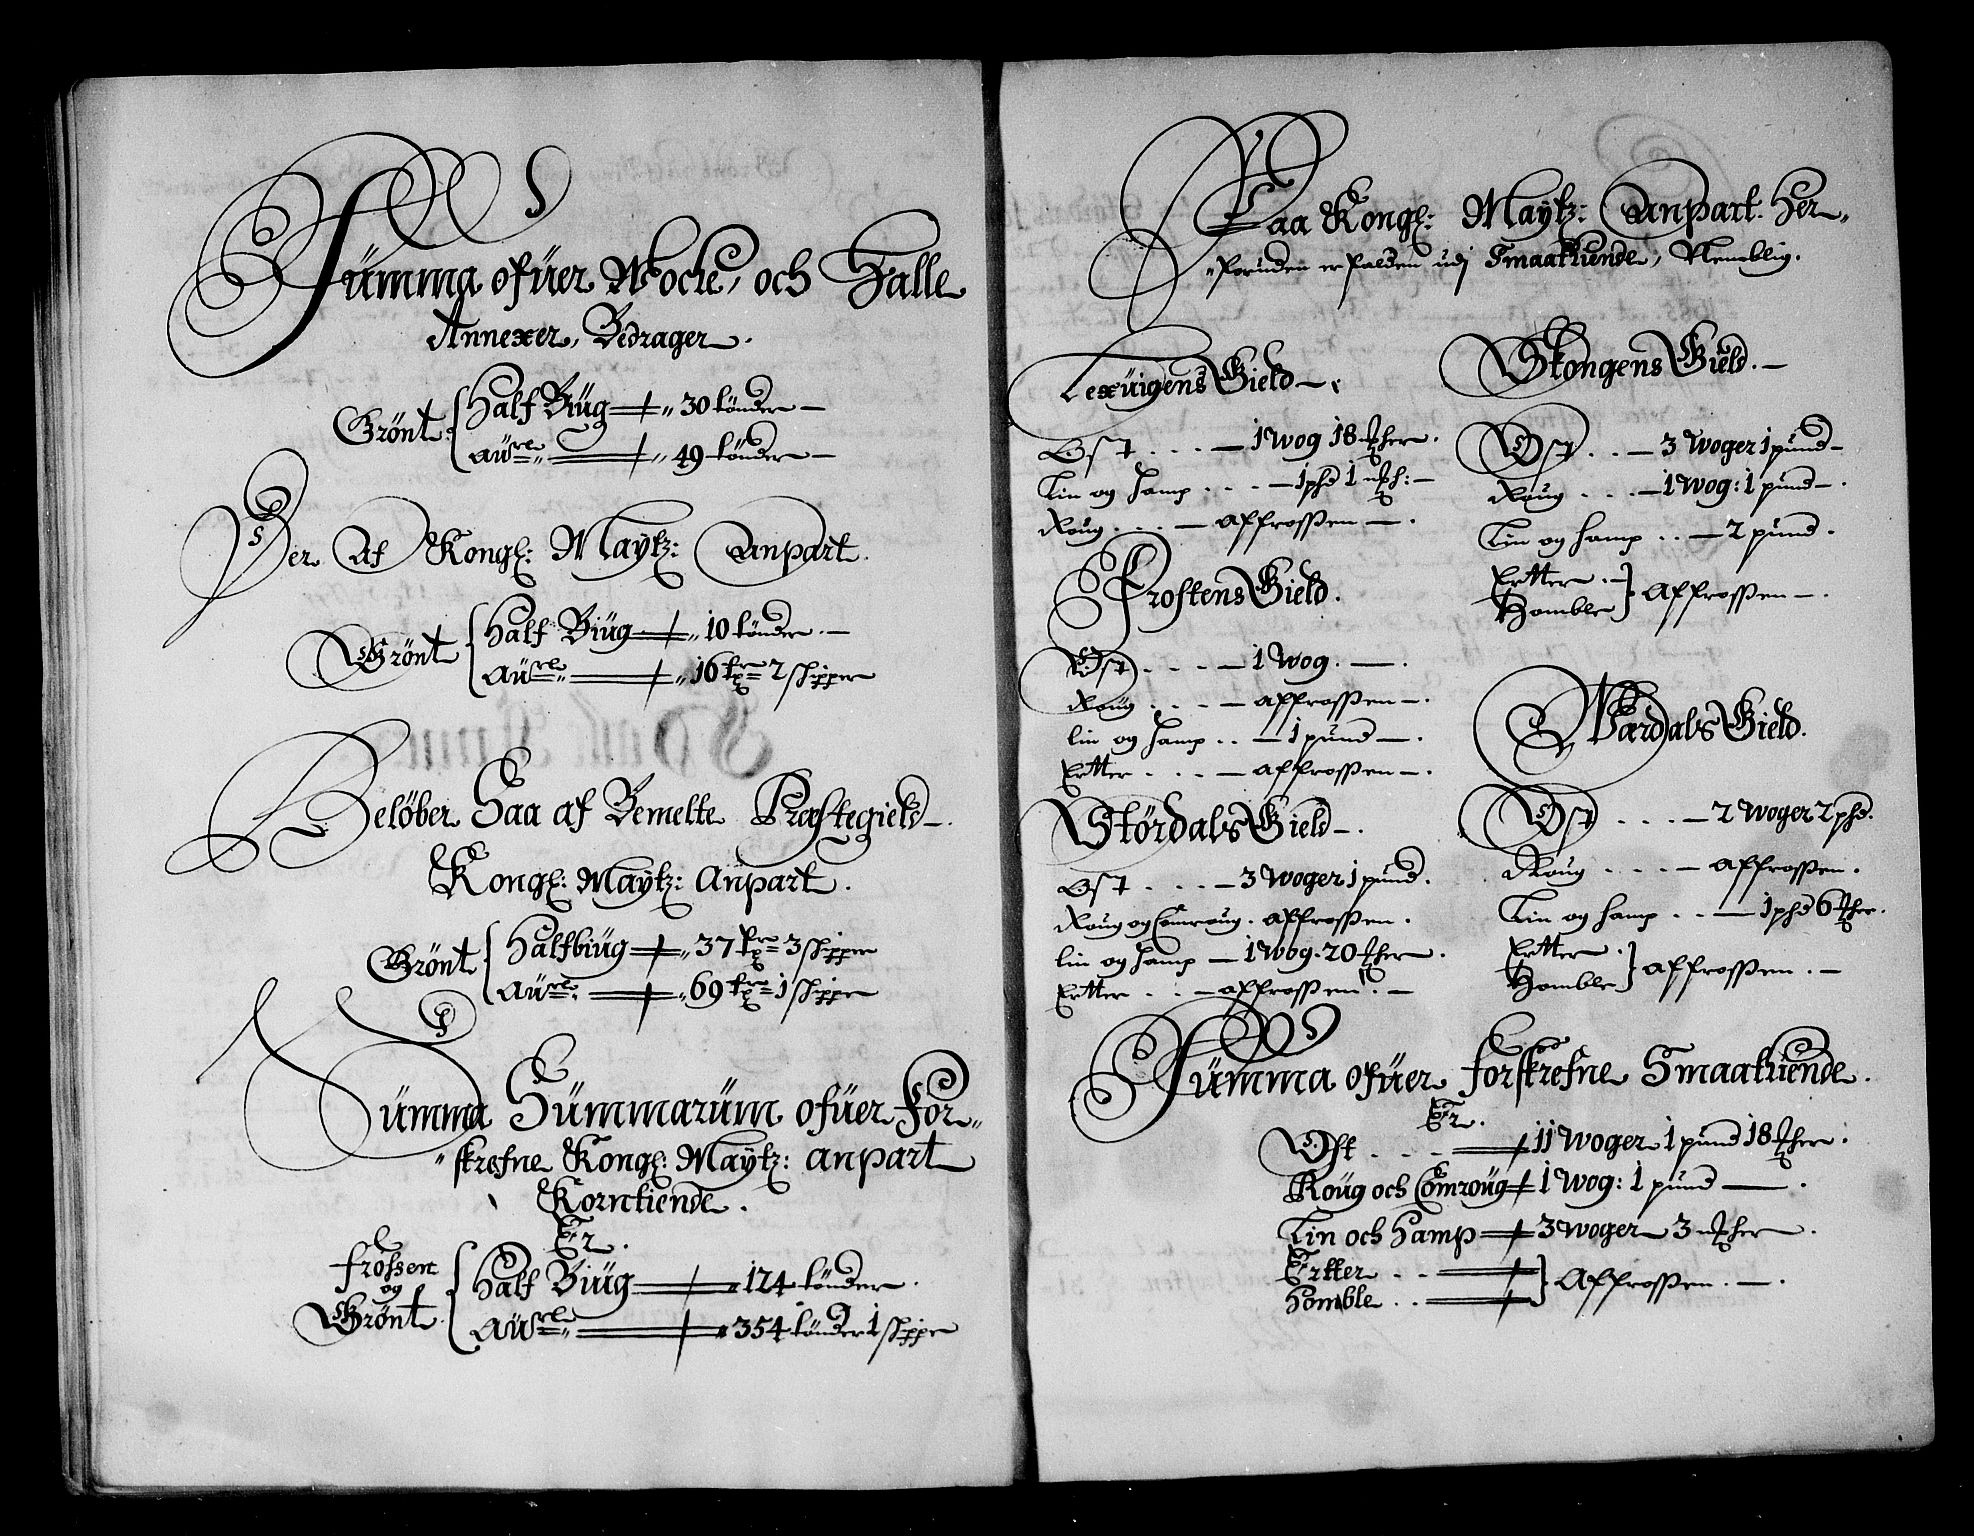 Summa ofüer Mocke, och Halle
Annexer, Bedrager.
Grönt Half Biüg 30 tönder
aürl: 49 tönder
Der Af Kongl: Maytz: Anpart.
Grönt Half Biüg 10 tönder.
aürl: 16 tr 2 skipper
Belöber Saa af Bemelte Præstegield
Kongl: Maytz: Anpart.
Grönt Halfbiüg 37 tr 3 skipper
aürl: 69 tr 1 skipper
Summa Summarüm ofüer For-
skrefne Kongl: Maytz: anpart
Korntiende.
Er.
frossen og Grönt Half Biüg 124 tönder.
aürl: 354 tönder 1 skipper
Paa Kongl: Maytz: Anpart. Her-
foruden er falden udj Smaatiende, Nemblig.
Lexüigens Gield
Ost . . . 1 wog 18 ther.
Lin og hamp . . . 1 phd 1
Roug . . . affrossen.
Frostens Gield.
Ost . . . 1 wog.
Roug . . . affrossen.
lin og hamp . . 1 pünd.
Ertter . . . affrossen.
Stördals Gield.
Ost . . . 3 woger 1 pünd.
Roug og Comroug. affrossen.
lin og hamp 1 wog. 20 ther.
Ertter . . . affrossen.
Skongens Gield.
Ost . . 3 woger 1 pünd
Roug . . . 1 wog: 1 pünd.
Lin og hamp . . 2 pünd.
Ertter.
Homble affrossen.
Værdals Gield.
Ost . . . 2 woger 2 phd.
Roug . . . affrossen.
Lin og hamp . . 1 phd 6 ther.
Ertter.
Homble affrossen.
Summa ofüer forskrefne Smaatiende.
Er.
Ost . . . 11 woger 1 pünd 18 ther.
Roüg och Comroüg 1 wog: 1 pünd.
Lin och Hamp 3 woger 3 ther.
Ertter . .
Homble . . Affrossen.